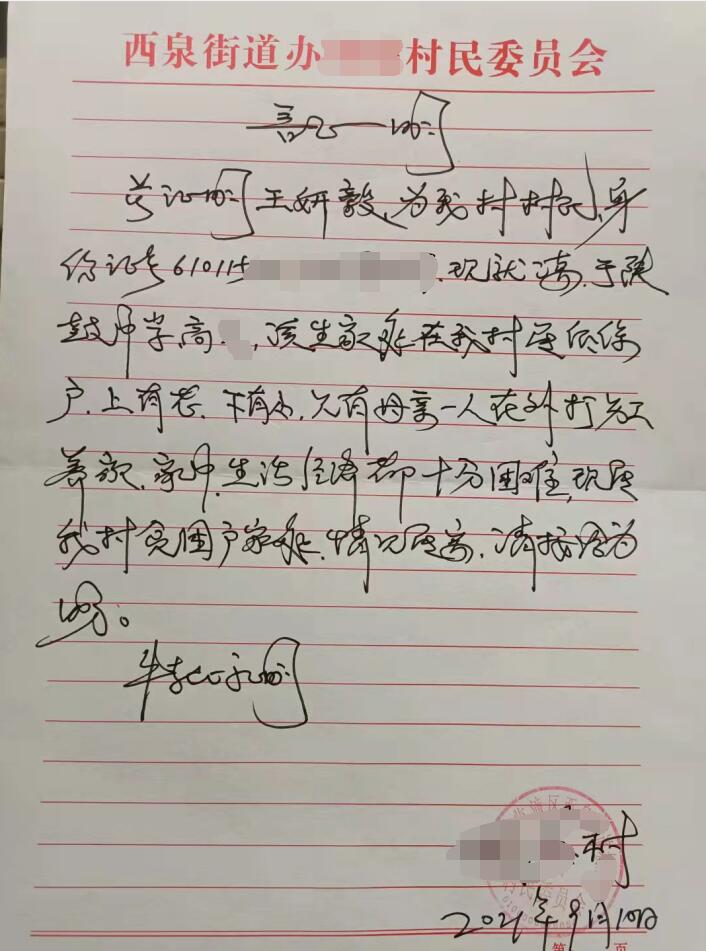 西泉街道办 村民委员会
证明
兹证明王妍毅,为我村村民,身
份证号61011 .现就读.于陕
鼓中学,高 ,该生家庭在我村属低保
户.上有老.下有小,只有母亲一人在外打工
养家.家中.生活经济都十分困难,现属
我村贫困户家庭.情况属实.请接洽为
盼。
特此证明
村
村民委员会
2021年9月10日
页